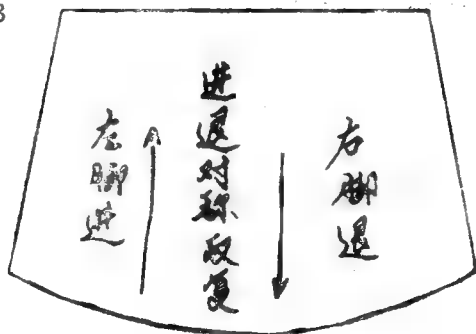 左脚进
进退对称反复
右脚退